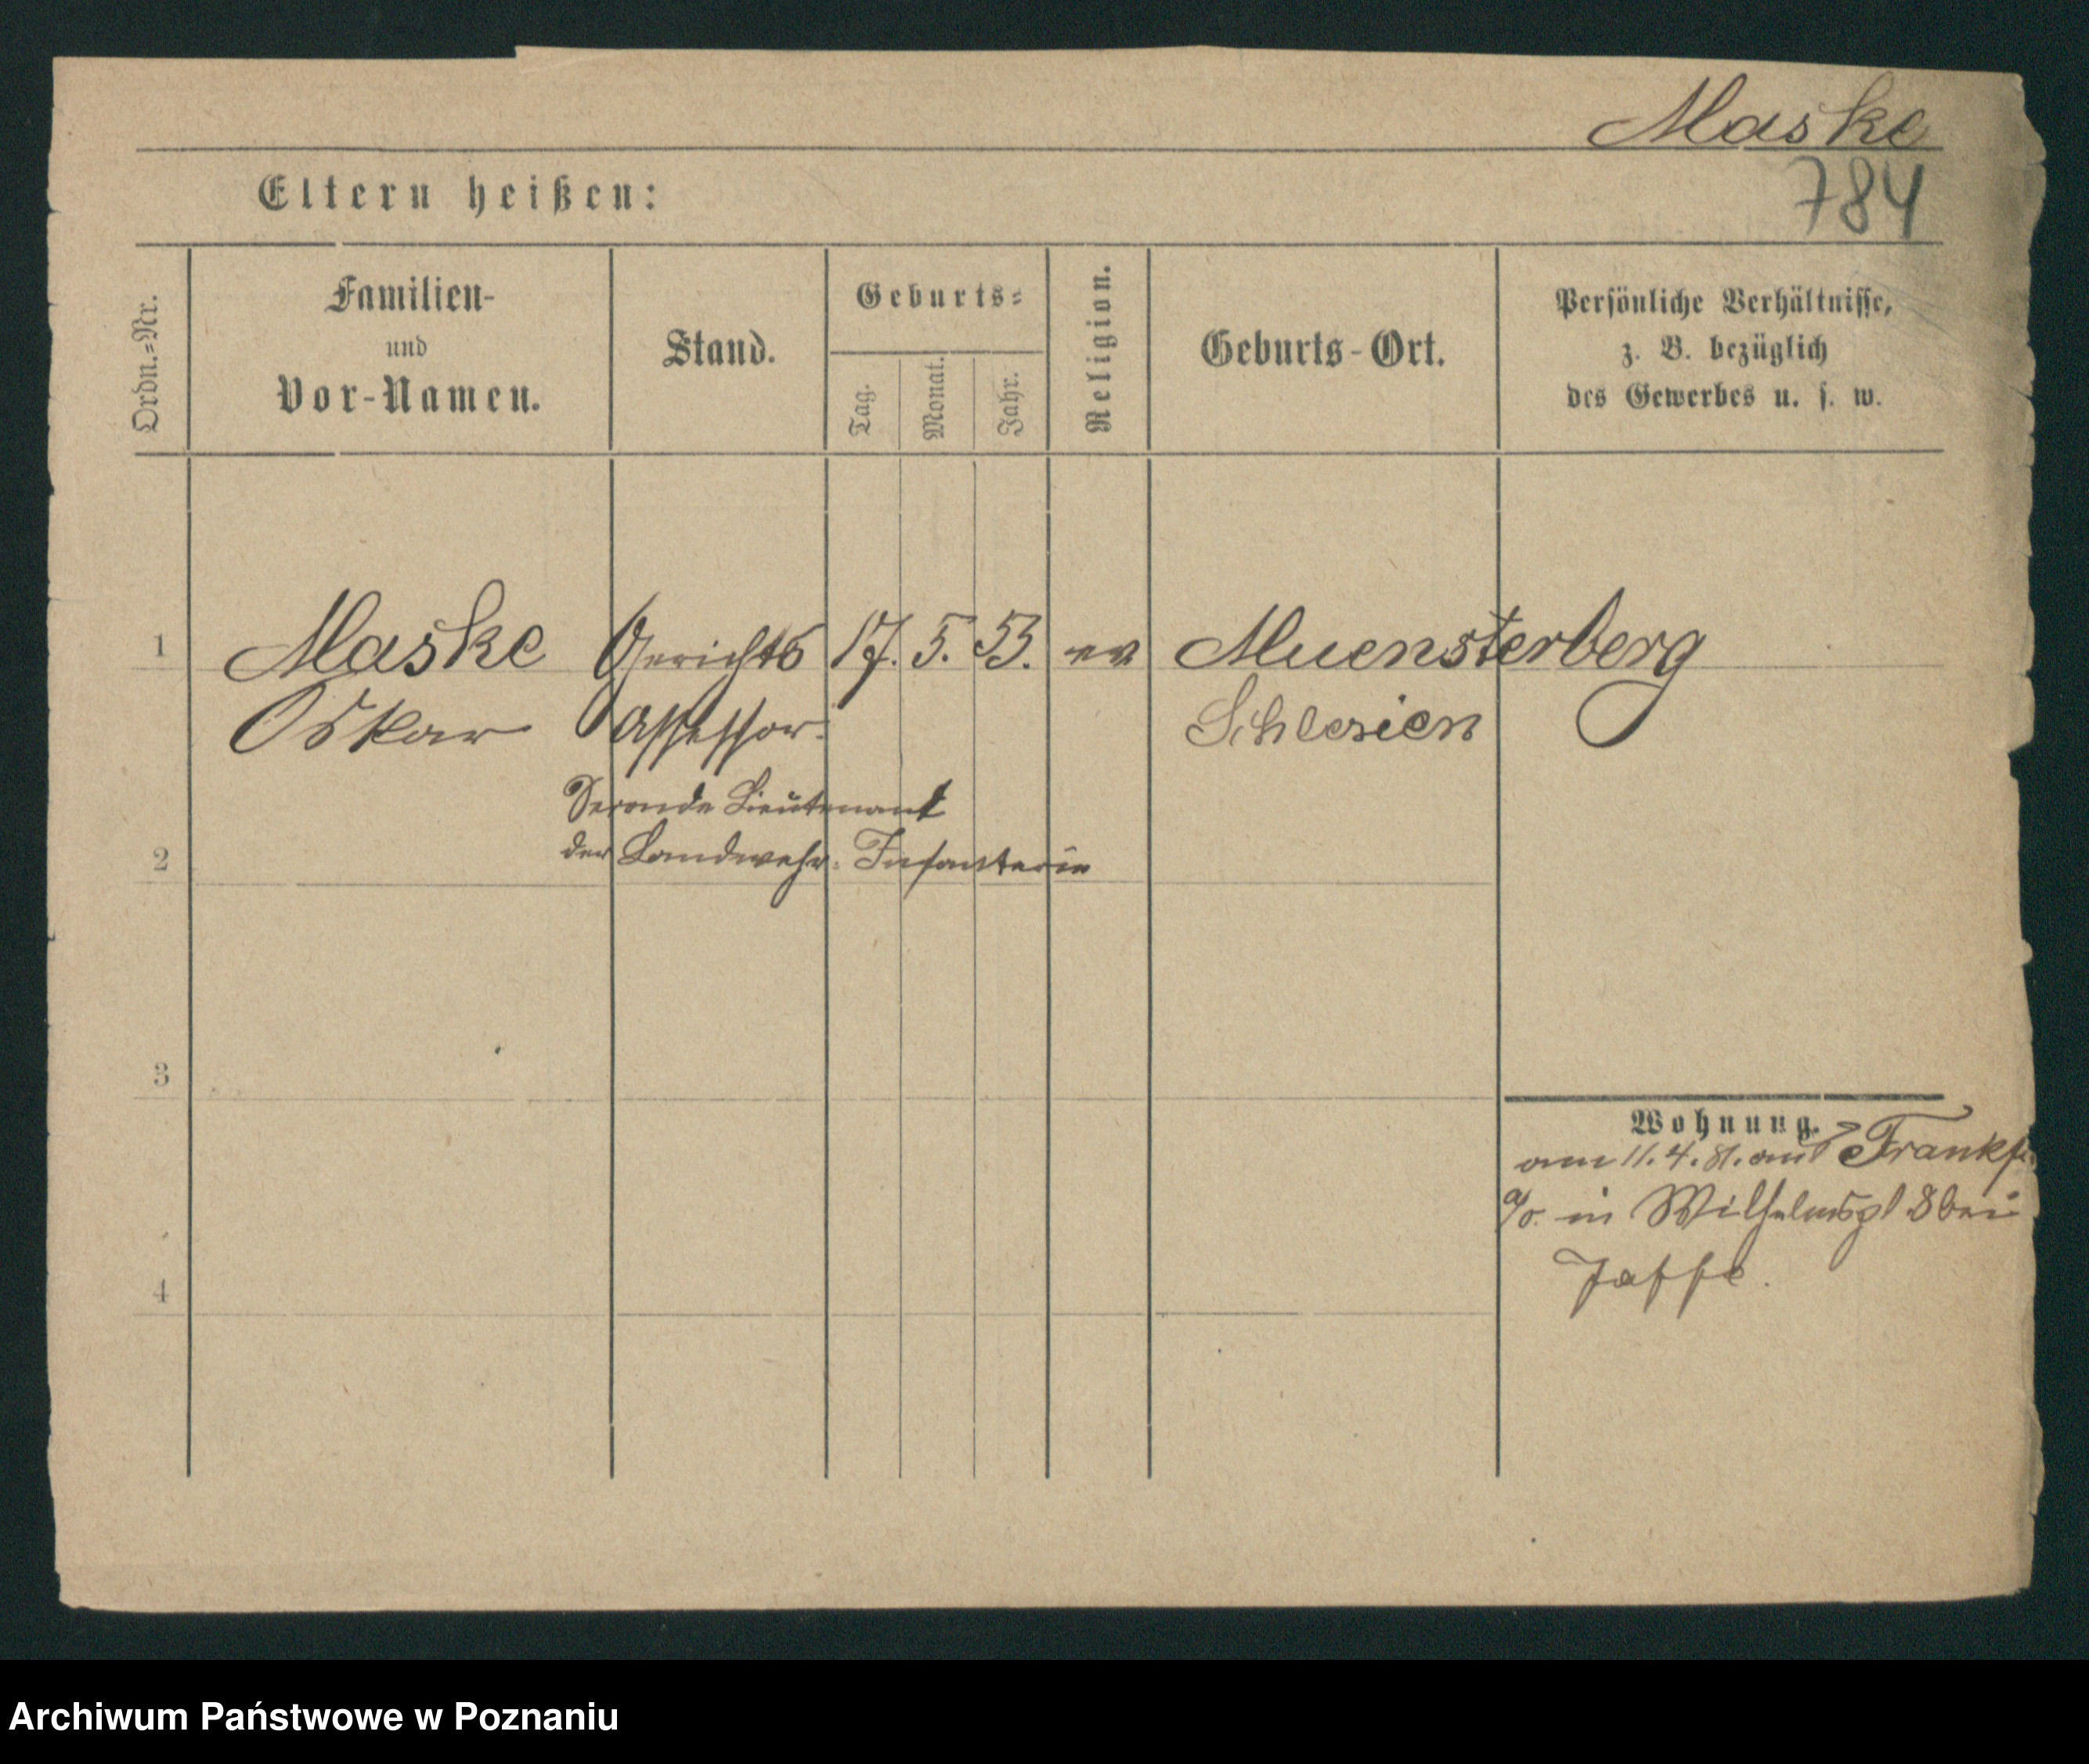 Maske
784
Eltern heißen:
Ordn.-Nr.
Familien-
und
Vor-Namen.
Stand.
Geburts-
Tag.
Monat.
Jahr.
Religion.
Geburts-Ort.
Persönliche Verhältnisse,
z. B. bezüglich
des Gewerbes u. s. w.
1 Maske Gerichts 17. 5. 53. ev Muensterberg
Oskar Assessor. Schlesien
Seconde Lieutenant
2 der Landwehr-Infanterie
3
Wohnung.
am 11.4.81. aus Frankf.
a/O. in Wilhelmspl 8 bei
4 Jaffe.
Archiwum Państwowe w Poznaniu